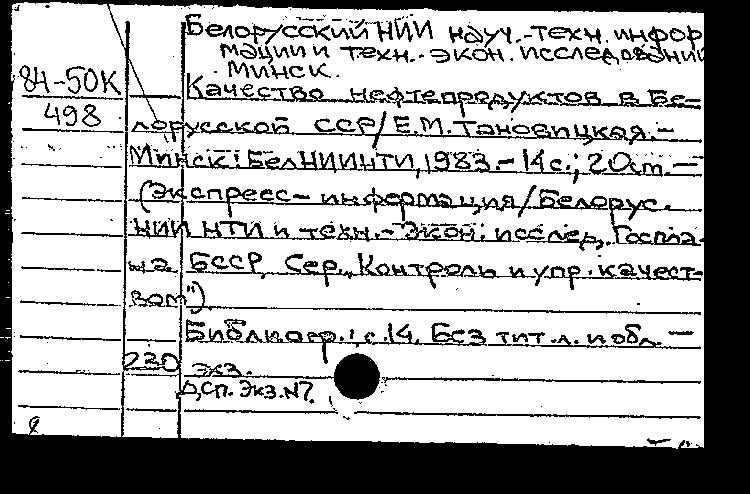 Белорусский НИИ науч.-техн. инфор
мации и техн.-экон. исследований
Минск.
84-50К
498
Качество нефтепродуктов в Бе-
лорусской ССР/Е.М. Тановицкая.-
Минск: БелНИИНТИ, 1983.- 14 с.; 20 см. —
(Экспресс-информация/Белорус.
НИИ НТИ и техн.-экон. исслед. Госпла-
на БССР, Сер., Контроль и упр. качест-
вом")
Библиогр.: с. 14. Без тит. л. и обл. —
230 экз.
ДСП. Экз. №7.